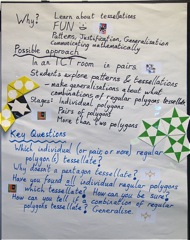 Why? Learn about tessellations
FUN
Patterns, Justification, Generalisation
communicating mathematically
Possible approach
In an ICT room in pairs
Students explore patterns & tessellations
- make generalisations about what
combinations of regular polygons tessellate
Stages: Individual polygons
Pairs of polygons
More than two polygons
Key Questions
Which individual (or pair or more) regular
polygon(s) tessellate?
Why doesn't a pentagon tessellate?
Have you found all individual regular polygons
which tessellate? How can you be sure?
How can you tell if a combination of regular
polygons tessellate? Generalise.